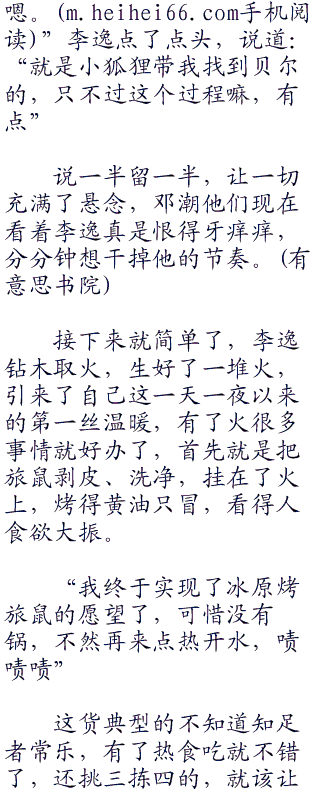 嗯。(m.heihei66.com手机阅
读)”李逸点了点头，说道：
“就是小狐狸带我找到贝尔
的，只不过这个过程嘛，有
点”
说一半留一半，让一切
充满了悬念，邓潮他们现在
看着李逸真是恨得牙痒痒，
分分钟想干掉他的节奏。(有
意思书院)
接下来就简单了，李逸
钻木取火，生好了一堆火，
引来了自己这一天一夜以来
的第一丝温暖，有了火很多
事情就好办了，首先就是把
旅鼠剥皮、洗净，挂在了火
上，烤得黄油只冒，看得人
食欲大振。
“我终于实现了冰原烤
旅鼠的愿望了，可惜没有
锅，不然再来点热开水，啧
啧啧”
这货典型的不知道知足
者常乐，有了热食吃就不错
了，还挑三拣四的，就该让